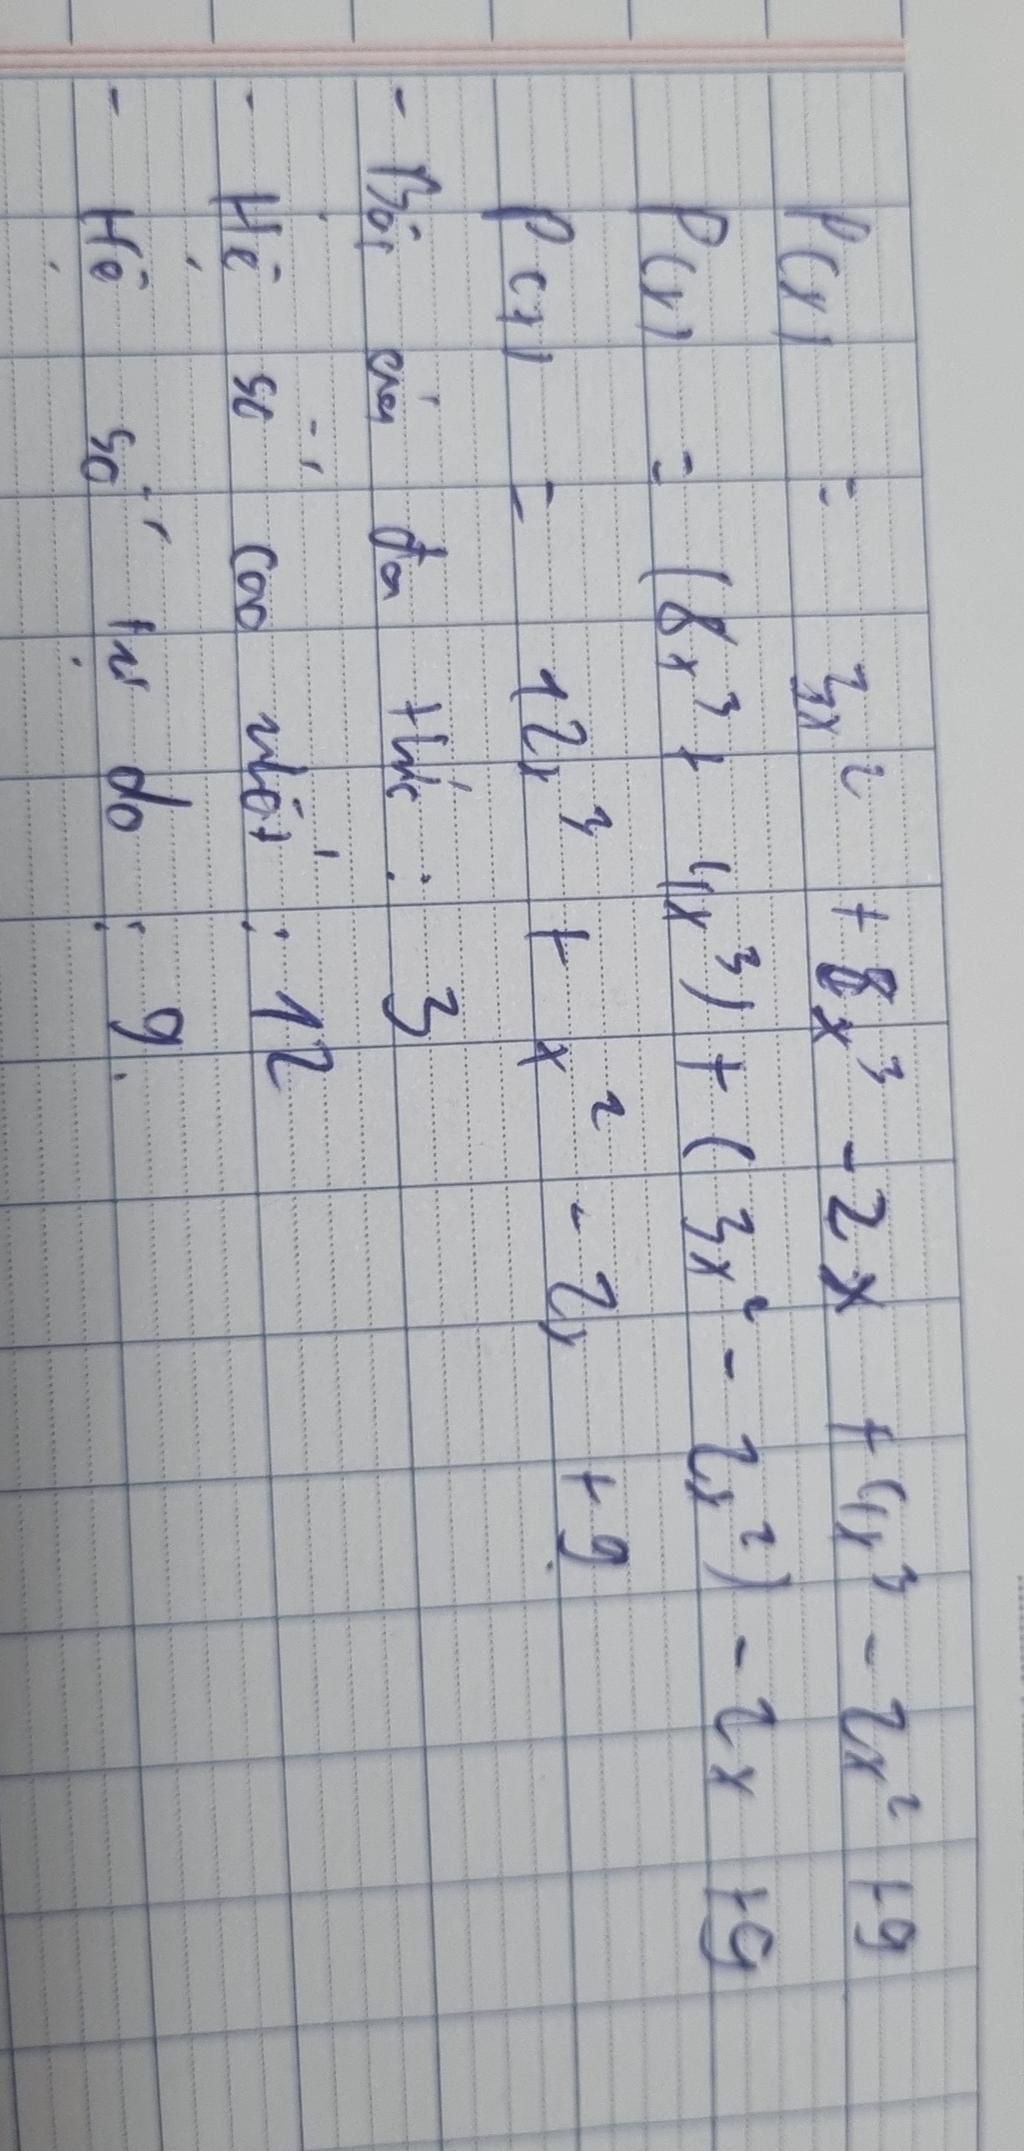 P(x) = 3x² + 8x³ - 2x + 4x³ - 2x² + 9
P(x) = (8x³ + 4x³) + (3x² - 2x²) - 2x + 9
P(x) = 12x³ + x² - 2x + 9.
- Bậc của đa thức : 3
- Hệ số cao nhất : 12
- Hệ số tự do : 9.